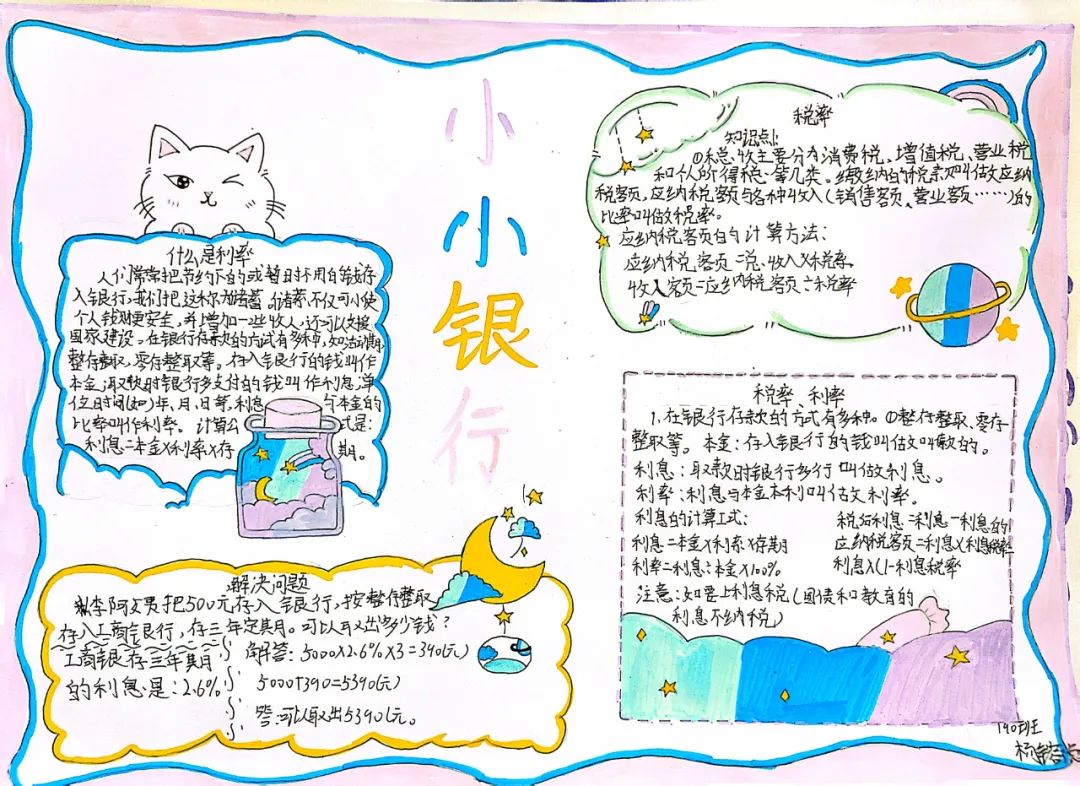 小
小
银
行
什么是利率
人们常常把节约下的或暂时不用的钱存
入银行,我们把这称为储蓄。储蓄不仅可以使
个人钱财更安全,并增加一些收入,还可以支援
国家建设。在银行存款的方式有多种,如活期,
整存整取,零存整取等。存入银行的钱叫作
本金,取款时银行多支付的钱叫作利息,单
位时间(如)年、月、日等,利息 与本金的
比率叫作利率。计算公 式是:
利息=本金X利率X存 期。
税率
知识点1:
①税收主要分为消费税、增值税、营业税
和个人所得税等几类。缴纳的税款叫做应纳
税额,应纳税额与各种收入(销售额、营业额……)的
比率叫做税率。
应纳税额的计算方法:
应纳税额=总收入X税率
收入额=应纳税额÷税率
税率、利率
1.在银行存款的方式有多种。①整存整取、零存
整取等。本金:存入银行的钱叫做叫款的。
利息:取款时银行多行叫做利息。
利率:利息与本金本利叫做利率。
利息的计算工式: 税后利息=利息-利息的
利息=本金X利率X存期 应纳税额=利息X利息税率
利率=利息÷本金X100% 利息X(1-利息税率
注意:如要上利息税(国债和教育的
利息不纳税)
解决问题
李阿姨把5000元存入银行,按整存整取
存入工商银行,存三年定期。可以取出多少钱?
工商银存三年期
的利息是:2.6%
解答:5000X2.6%X3=390(元)
5000+390=5390(元)
答:可以取出5390元。
190班